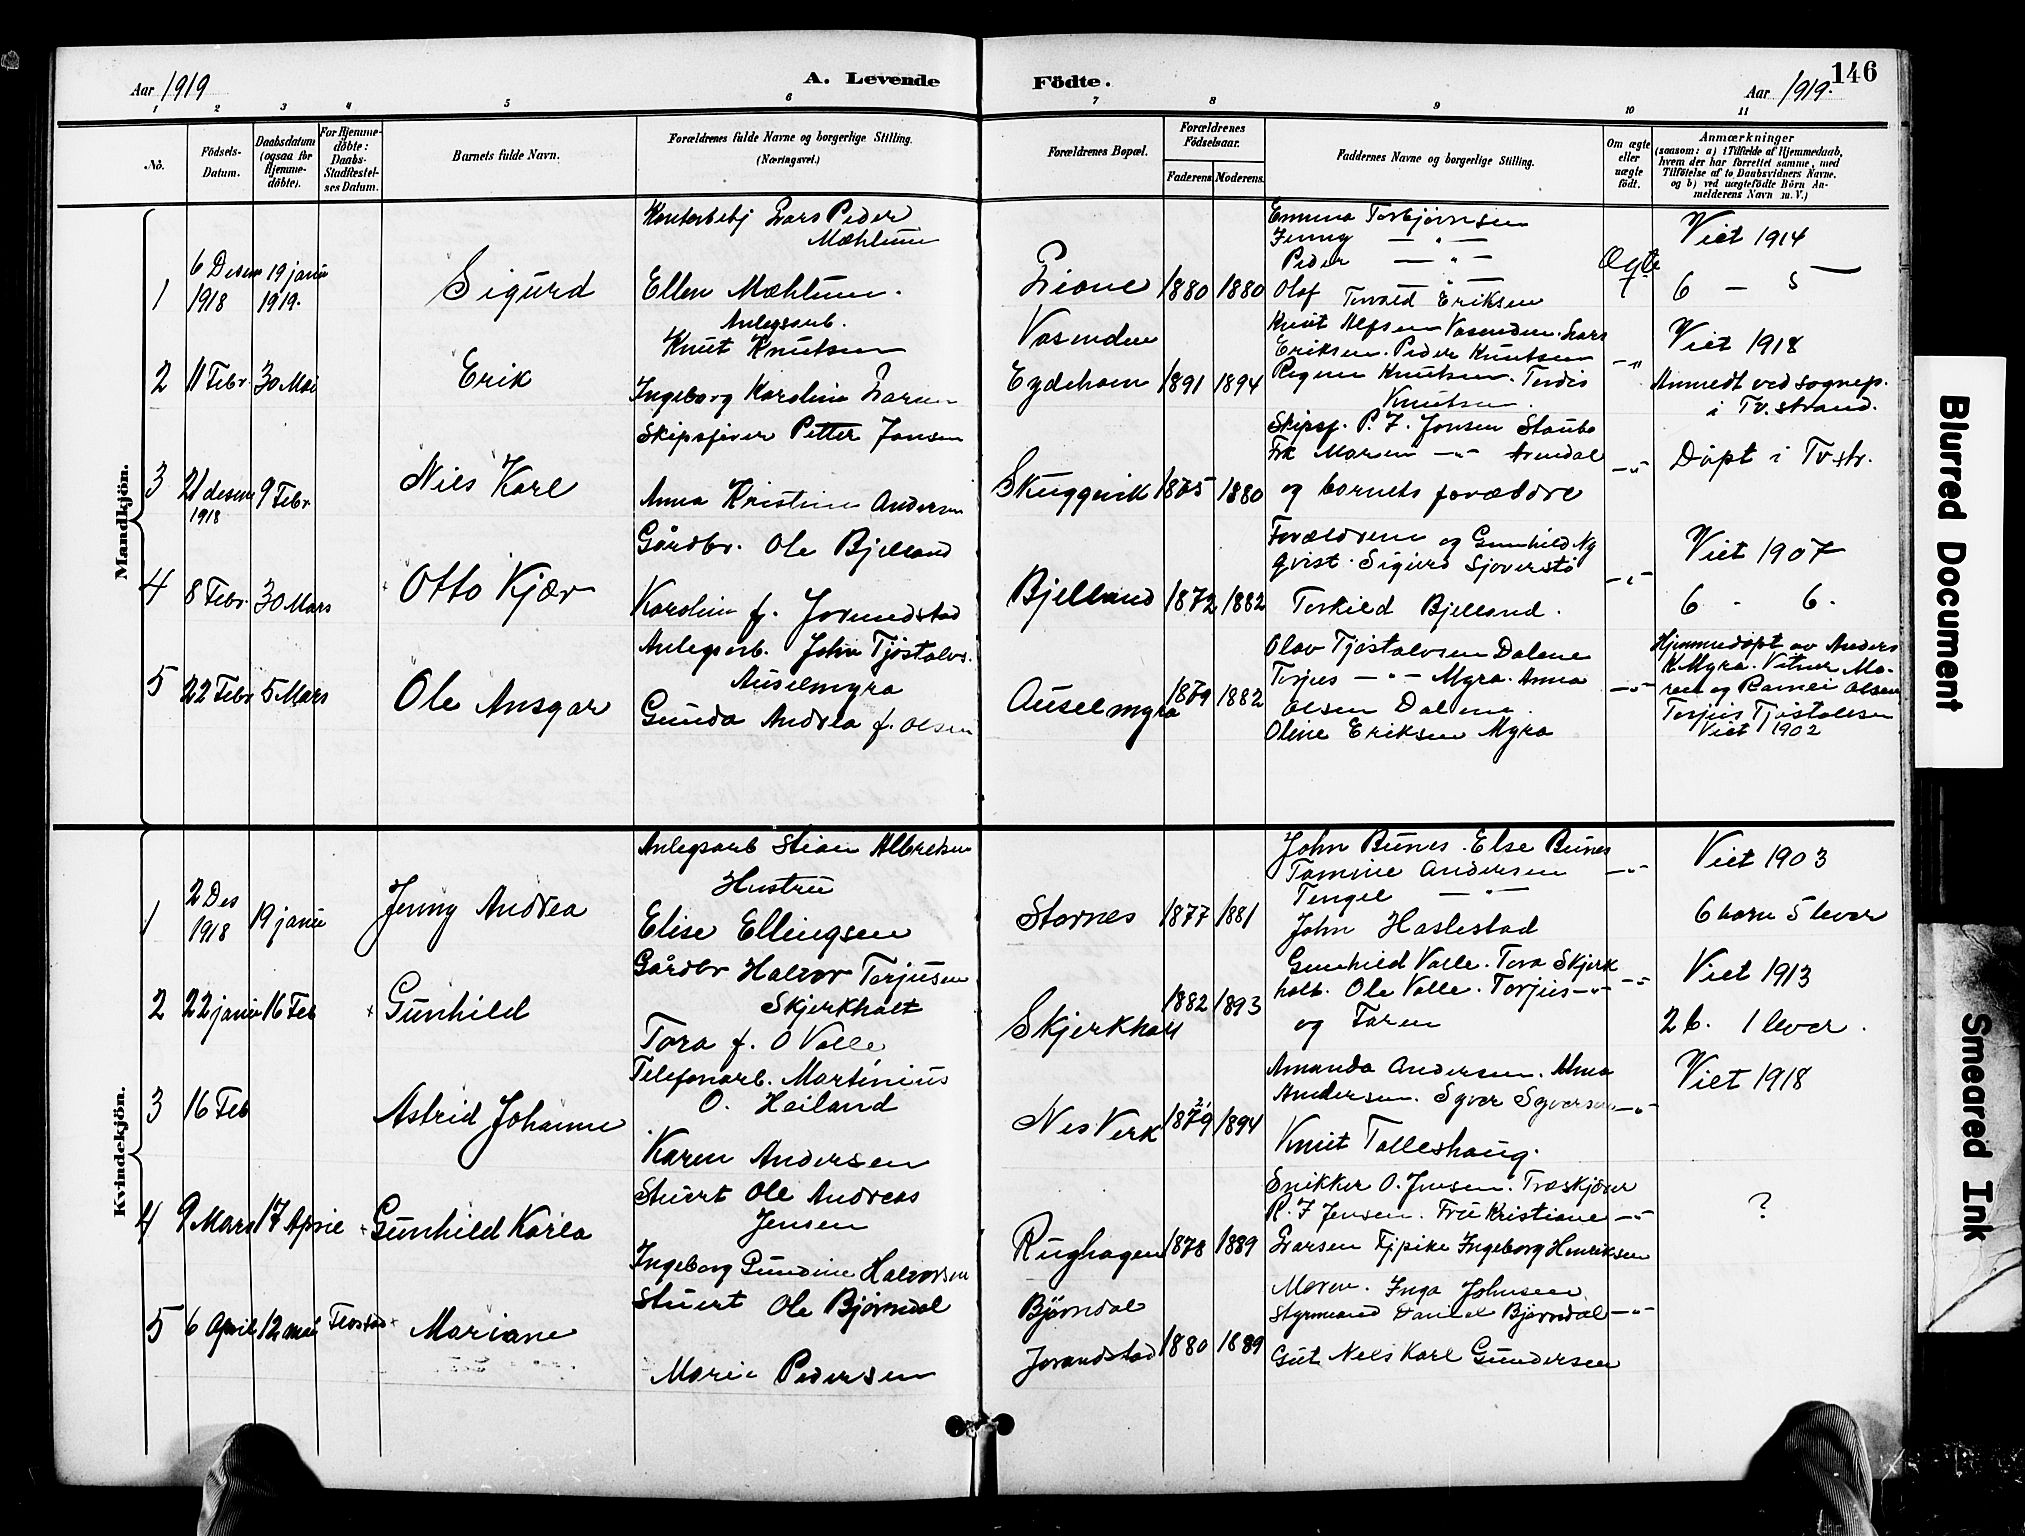 146
Aar 1919
A. Levende
Födte.
Aar 1919.
1 2 3 4 5 6 7 8 9 10 11
No.
Födsels-Datum.
Daabsdatum (ogsaa for Hjemme-döbte).
For Hjemme-döbte: Daabs-Stadfestel-ses Datum.
Barnets fulde Navn.
Forældrenes fulde Navne og borgerlige Stilling.
(Næringsvei.)
Forældrenes Bopæl.
Forældrenes Födselsaar.
Faderens Moderens.
Faddernes Navne og borgerlige Stilling.
Om ægte eller uægte födt.
Anmærkninger
(saasom: a) i Tilfælde af Hjemmedaab,
hvem der har forrettet samme, med
Tilföielse af to Daabsvidners Navne,
og b) ved uægtefödte Börn An-
melderens Navn m. V.)
Mandkjön.
1
6 Desem 1918
19 janu 1919.
Sigurd
Lars Peder
Mæhlum
Ellen Mæhlum.
Liane
1880 1880
Emma Torbjørnsen
Jenny — " —
Peder — " —
Olaf — " —
Torvald Eriksen
Ægte
Viet 1914
6 — 5
2
11 Febr.
30 Mai
Erik
Anlegsarb.
Knut Knutsen
Ingeborg Karoline Larsen
Vasenden
Eydehavn
1891 1894
Knut Alfsen Vasenden. Lars
Eriksen. Peder Knutsen
Knutsen. Tordis
Knutsen.
— " —
Viet 1918
Anmeldt ved sognep.
i Tv.strand.
3
21 desem 1918
9 Febr
Nils Karl
Petter Jonsen
Anna Kristine Andersen
Skuggevik
1875 1880
Skipsf. P. F. Jonsen Staubo
Maren — " — Arendal
og barnets forældre
— " —
Døpt i Tvstr.
4
8 Febr.
30 Mars
Otto Kjær
Gårdbr. Ole Bjelland
Karoline f. Jorundstad
Bjelland
1872 1882
Forældrene og Gunhild Ny
qvist. Sigurd Sjøverstø
Torkild Bjelland.
— " —
Viet 1907
6 - 6.
5
22 Febr
5 Mars
Ole Ansgar
Anlegsarb. John Tjøstolvs.
Auselmyra
Gunda Andrea f. Olsen
Auselmyra
1879 1882
Olav Tjøstolvsen Dalene
Torjus — " — Myra. Anna
Olsen Dalene.
Oline Eriksen Myra
— " —
Hjemmedøpt av Anders
K. Myra. Vitner Ma-
ren og Olsen
Torjus Tjøstolvsen
Viet 1902
Kvindekjön.
1
2 Des 1918
19 janu
Jenny Andrea
Anlegsarb Stian Albretsen
Hustru
Elise Ellingsen
Stornes
1877 1881
John Bunes. Else Bunes
Tomine Andersen
Tengel — " —
John Haslestad
— " —
Viet 1903
6 barn 5 lever
2
22 janu
16 Feb
Gunhild
Gårdbr Halvor Torjusen
Skjerkholt
Tora f. O Valle
Skjerkholt
1882 1893
Gunhild Valle. Tora Skjerk
holt. Ole Valle. Torjus — " —
og Taren
— " —
Viet 1913
2 b. 1 lever.
3
16 Feb
Astrid Johanne
Telefonarb. Martinius
O. Heiland
Karen Andersen
Nes Verk
1879 1894
Amanda Andersen. Alma
Andersen. Syver Syversen
Knut Talleshaug.
— " —
Viet 1918
4
9 Mars
17 April
Gunhild Karla
Stuert Ole Andreas
Jensen
Ingeborg Gundine Halvorsen
Rughagen
1878 1889
Snikker O. Jensen.
R. F Jensen. Fru Kristiane
Larsen Ingeborg Henriksen
— " —
?
5
6 April
12 mai
Mariane
Stuert Ole Bjørndal
Marie Pedersen
Bjørndal
Jorandstad
1880 1889
Maren. Inga Johnsen
Styrmand Daniel Bjørndal
Gut Nils Karl Gundersen
— " —
Blurred Document
Smeared Ink